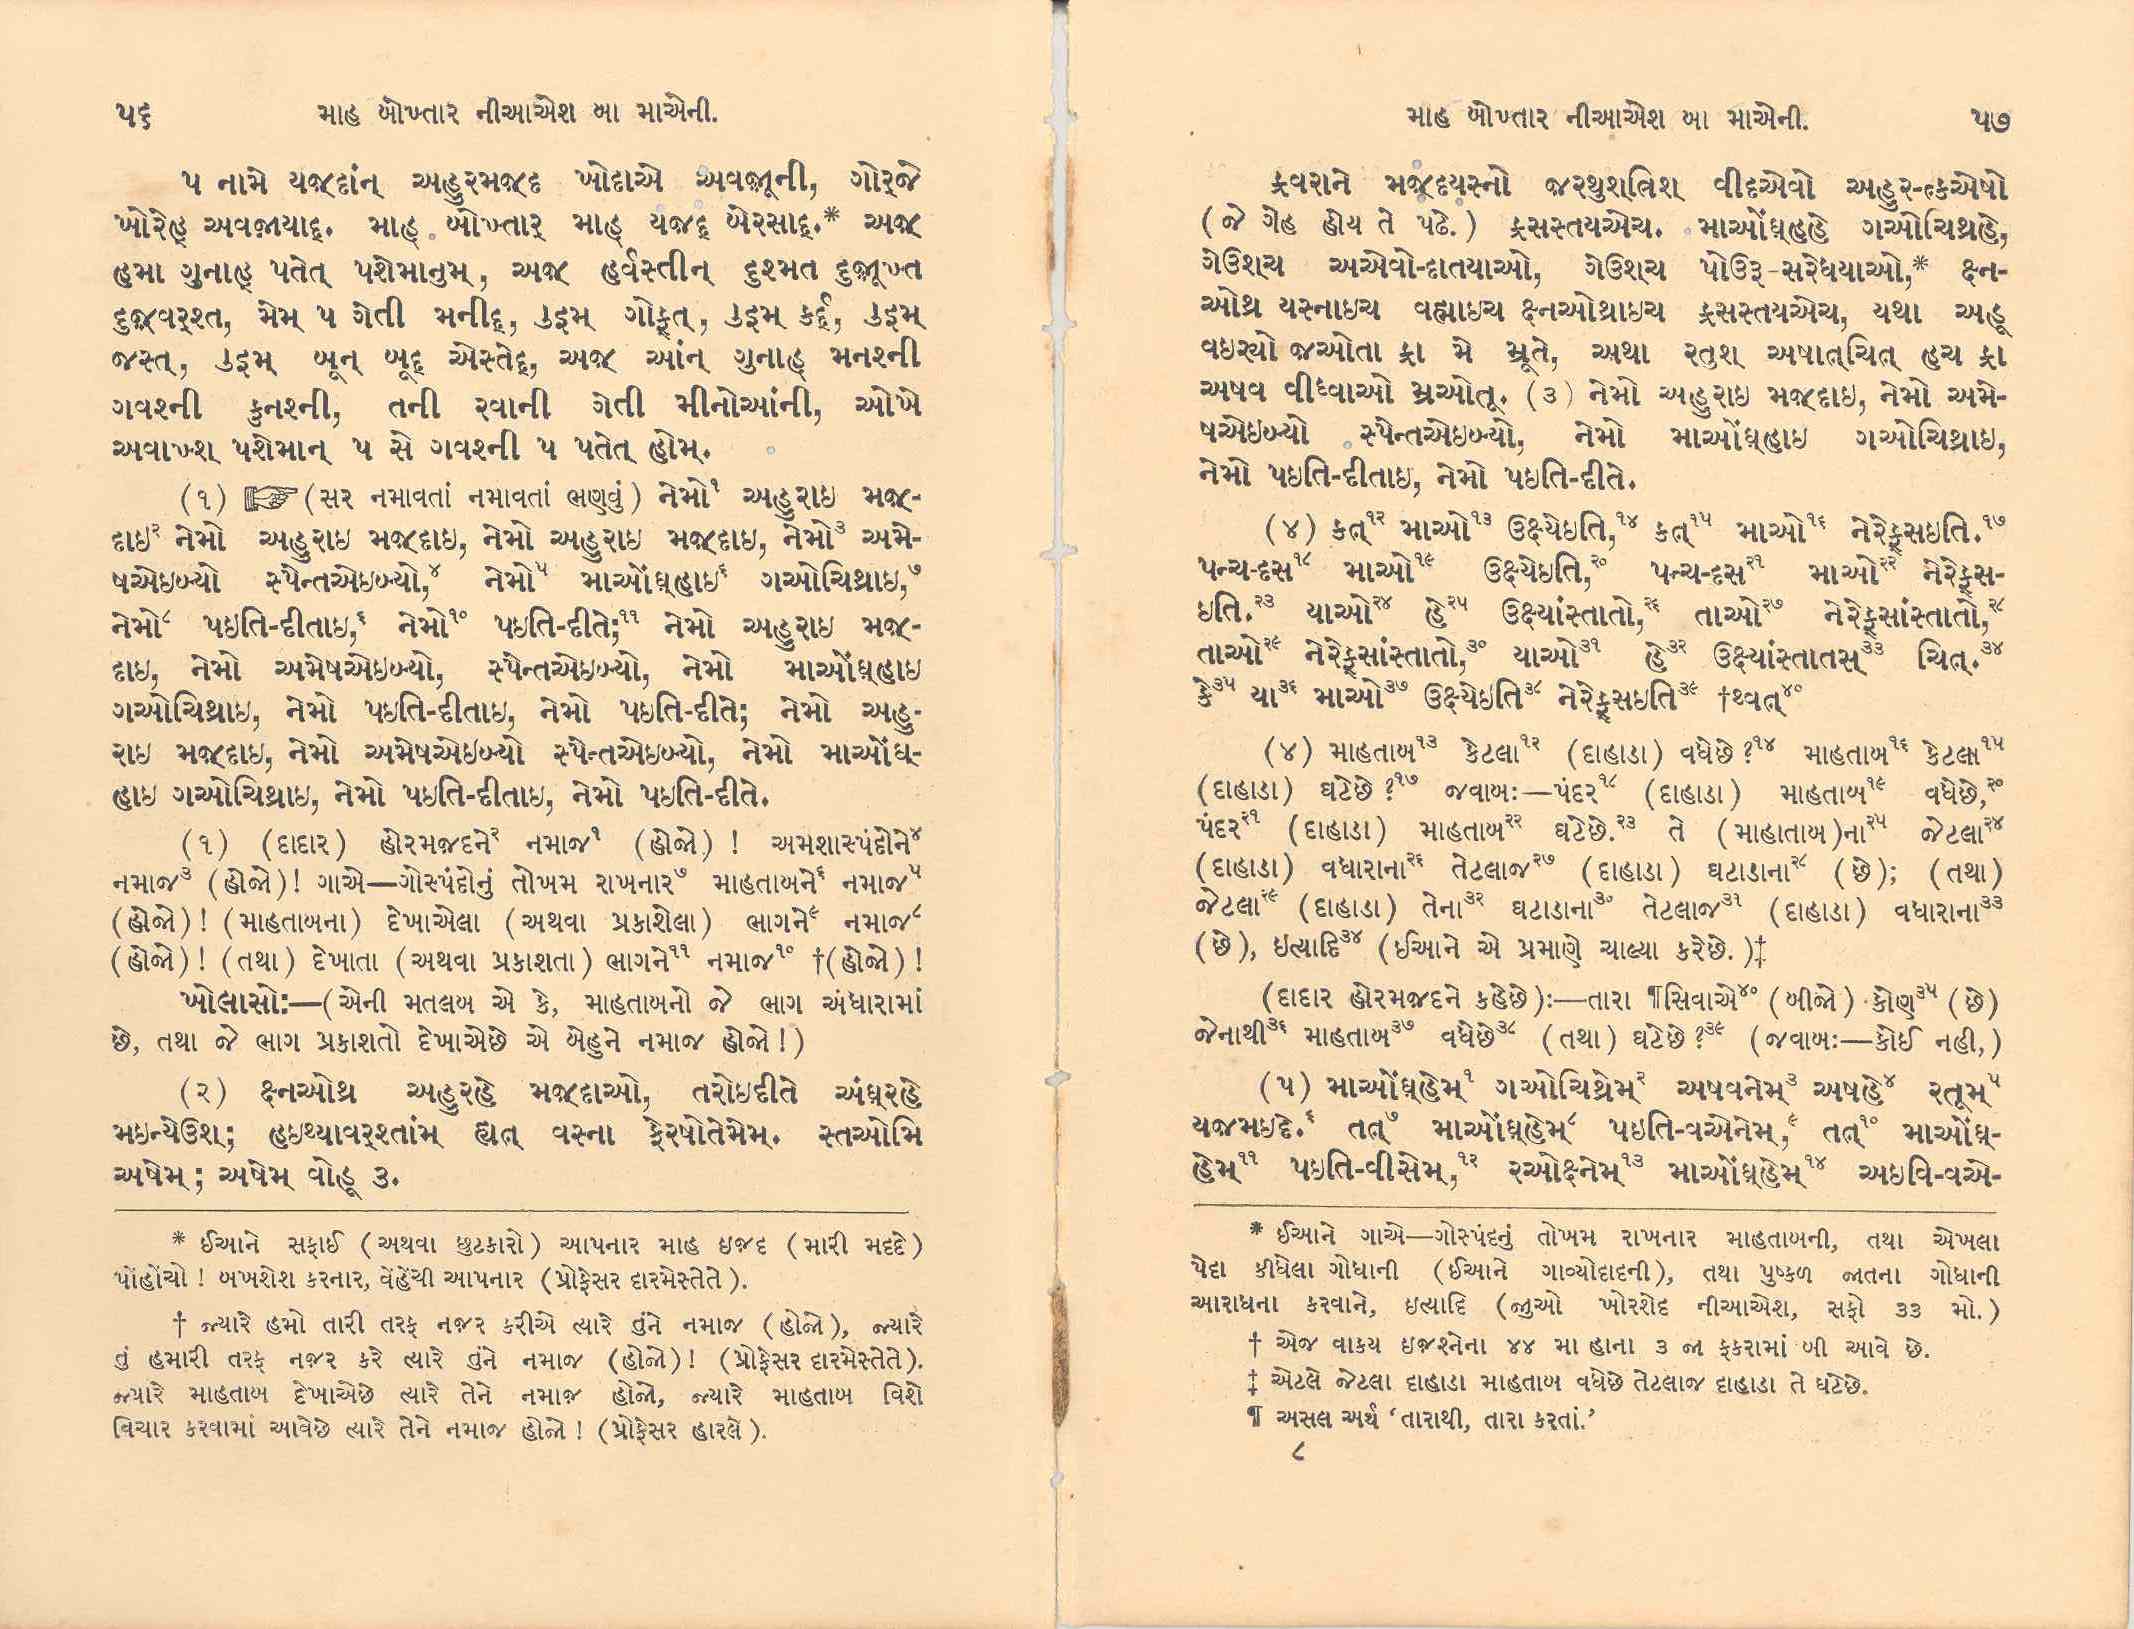 ૫૬ માહ બોખ્તાર નીઆએશ બા માએની.
પ નામે યજ઼્દાંન્ અહુરમજ઼્દ ખોદાએ અવજ઼ૂની, ગોર્જે
ખોરેહ્ અવજ઼ાયાદ્. માહ્ બોખ્તાર્ માહ્ યજ઼દ્ બેરસાદ્.* અજ઼્
હમા ગુનાહ્ પતેત્ પશેમાનુમ્, અજ઼્ હર્વસ્તીન્ દુશ્મત દુજ઼ૂખ્ત
દુજ઼્વર્શ્ત, મેમ્ પ ગેતી મનીદ્, ઉઇમ્ ગોફ્ત્, ઉઇમ્ કર્દ્, ઉઇમ્
જસ્ત્, ઉઇમ્ બૂન્ બૂદ્ એસ્તેદ્, અજ઼્ આંન્ ગુનાહ્ મનશ્ની
ગવશ્ની કુનશ્ની, તની રવાની ગેતી મીનોઆંની, ઓખે
અવાખ્શ્ પશેમાન્ પ સે ગવશ્ની પ પતેત્ હોમ્.
(૧) ☞ (સર નમાવતાં નમાવતાં ભણવું) નેમો૧ અહુરાઇ મજ઼્-
દાઇ૨ નેમો અહુરાઇ મજ઼્દાઇ, નેમો અહુરાઇ મજ઼્દાઇ, નેમો૩ અમે-
ષએઇબ્યો સ્પેન્તએઇબ્યો,૪ નેમો૫ માઓંઘ્હાઇ૬ ગઓચિથ્રાઇ,૭
નેમો૮ પઇતિ-દીતાઇ,૯ નેમો૧૦ પઇતિ-દીતે;૧૧ નેમો અહુરાઇ મજ઼્-
દાઇ, નેમો અમેષએઇબ્યો, સ્પેન્તએઇબ્યો, નેમો માઓંઘ્હાઇ
ગઓચિથ્રાઇ, નેમો પઇતિ-દીતાઇ, નેમો પઇતિ-દીતે; નેમો અહુ-
રાઇ મજ઼્દાઇ, નેમો અમેષએઇબ્યો સ્પેન્તએઇબ્યો, નેમો માઓંઘ્-
હાઇ ગઓચિથ્રાઇ, નેમો પઇતિ-દીતાઇ, નેમો પઇતિ-દીતે.
(૧) (દાદાર) હોરમજ઼દને૨ નમાજ૧ (હોજો) ! અમશાસ્પંદોને૪
નમાજ૩ (હોજો)! ગાએ—ગોસ્પંદોનું તોખમ રાખનાર૭ માહતાબને૬ નમાજ૫
(હોજો)! (માહતાબના) દેખાએલા (અથવા પ્રકાશેલા) ભાગને૯ નમાજ૮
(હોજો)! (તથા) દેખાતા (અથવા પ્રકાશતા) ભાગને૧૧ નમાજ૧૦ †(હોજો)!
ખોલાસો:—(એની મતલબ એ કે, માહતાબનો જે ભાગ અંધારામાં
છે, તથા જે ભાગ પ્રકાશતો દેખાએછે એ બેહુને નમાજ હોજો!)
(૨) ક્ષ્નઓથ્ર અહુરહે મજ઼્દાઓ, તરોઇદીતે અંઘ્રહે
મઇન્યેઉશ્; હઇથ્યાવર્શ્તાંમ્ હ્યત્ વસ્ના ફેરષોતેમેમ્. સ્તઓમિ
અષેમ્; અષેમ્ વોહૂ ૩.
* ઈઆને સફાઈ (અથવા છુટકારો) આપનાર માહ ઇજ઼દ (મારી મદદે)
પોંહોંચો! બખશેશ કરનાર, વેંહેંચી આપનાર (પ્રોફેસર દારમેસ્તેતે).
† જ્યારે હમો તારી તરફ નજ઼ર કરીએ ત્યારે તુંને નમાજ (હોજો), જ્યારે
તું હમારી તરફ નજ઼ર કરે ત્યારે તુંને નમાજ (હોજો)! (પ્રોફેસર દારમેસ્તેતે).
જ્યારે માહતાબ દેખાએછે ત્યારે તેને નમાજ઼ હોજો, જ્યારે માહતાબ વિશે
વિચાર કરવામાં આવેછે ત્યારે તેને નમાજ હોજો! (પ્રોફેસર હારલે).
માહ બોખ્તાર નીઆએશ બા માએની. ૫૭
ફ્રવરાને મજ઼્દયસ્નો જ઼રથુશ્ત્રિશ્ વીદએવો અહુર-ત્કએષો
(જે ગેહ હોય તે પઢે.) ફ્રસસ્તયએચ. માઓંઘ્હહે ગઓચિથ્રહે,
ગેઉશ્ચ અએવો-દાતયાઓ, ગેઉશ્ચ પોઉરૂ-સરેધયાઓ,* ક્ષ્ન-
ઓથ્ર યસ્નાઇચ વહ્માઇચ ક્ષ્નઓથ્રાઇચ ફ્રસસ્તયએચ, યથા અહૂ
વઇર્યો જ઼ઓતા ફ્રા મે મ્રૂતે, અથા રતુશ્ અષાત્ચિત્ હચ ફ્રા
અષવ વીધ્વાઓ મ્રઓતૂ. (૩) નેમો અહુરાઇ મજ઼્દાઇ, નેમો અમે-
ષએઇબ્યો સ્પેન્તએઇબ્યો, નેમો માઓંઘ્હાઇ ગઓચિથ્રાઇ,
નેમો પઇતિ-દીતાઇ, નેમો પઇતિ-દીતે.
(૪) કત્૧૨ માઓ૧૩ ઉક્ષ્યેઇતિ,૧૪ કત્૧૫ માઓ૧૬ નેરેફ્સઇતિ.૧૭
પન્ચ-દસ૧૮ માઓ૧૯ ઉક્ષ્યેઇતિ,૨૦ પન્ચ-દસ૨૧ માઓ૨૨ નેરેફ્સ-
ઇતિ.૨૩ યાઓ૨૪ હે૨૫ ઉક્ષ્યાંસ્તાતો,૨૬ તાઓ૨૭ નેરેફ્સાંસ્તાતો,૨૮
તાઓ૨૯ નેરેફ્સાંસ્તાતો,૩૦ યાઓ૩૧ હે૩૨ ઉક્ષ્યાંસ્તાતસ્૩૩ ચિત્.૩૪
કે૩૫ યા૩૬ માઓ૩૭ ઉક્ષ્યેઇતિ૩૮ નેરેફ્સઇતિ૩૯ †થ્વત્૪૦
(૪) માહતાબ૧૩ કેટલા૧૨ (દાહાડા) વધેછે?૧૪ માહતાબ૧૬ કેટલા૧૫
(દાહાડા) ઘટેછે?૧૭ જવાબ:—પંદર૧૮ (દાહાડા) માહતાબ૧૯ વધેછે,૨૦
પંદર૨૧ (દાહાડા) માહતાબ૨૨ ઘટેછે.૨૩ તે (માહાતાબ)ના૨૫ જેટલા૨૪
(દાહાડા) વધારાના૨૬ તેટલાજ૨૭ (દાહાડા) ઘટાડાના૨૮ (છે); (તથા)
જેટલા૨૯ (દાહાડા) તેના૩૨ ઘટાડાના૩૦ તેટલાજ૩૧ (દાહાડા) વધારાના૩૩
(છે), ઇત્યાદિ૩૪ (ઈઆને એ પ્રમાણે ચાલ્યા કરેછે.)‡
(દાદાર હોરમજ઼દને કહેછે):—તારા ¶સિવાએ૪૦ (બીજો) કોણ૩૫ (છે)
જેનાથી૩૬ માહતાબ૩૭ વધેછે૩૮ (તથા) ઘટેછે?૩૯ (જવાબ:—કોઈ નહી,)
(૫) માઓંઘ્હેમ્૧ ગઓચિથ્રેમ્૨ અષવનેમ્૩ અષહે૪ રતૂમ્૫
યજ઼મઇદે.૬ તત્૭ માઓંઘ્હેમ્૮ પઇતિ-વએનેમ્,૯ તત્૧૦ માઓંઘ્-
હેમ્૧૧ પઇતિ-વીસેમ્,૧૨ રઓક્ષ્નેમ્૧૩ માઓંઘ્હેમ્૧૪ અઇવિ-વએ-
* ઈઆને ગાએ—ગોસ્પંદનું તોખમ રાખનાર માહતાબની, તથા એખલા
પેદા કીધેલા ગોધાની (ઈઆને ગાવ્યોદાદની), તથા પુષ્કળ જાતના ગોધાની
આરાધના કરવાને, ઇત્યાદિ (જુઓ ખોરશેદ નીઆએશ, સફો ૩૩ મો.)
† એજ વાકય ઇજ઼શ્નેના ૪૪ મા હાના ૩ જા ફકરામાં બી આવે છે.
‡ એટલે જેટલા દાહાડા માહતાબ વધેછે તેટલાજ દાહાડા તે ઘટેછે.
¶ અસલ અર્થ ‘તારાથી, તારા કરતાં.’
૮